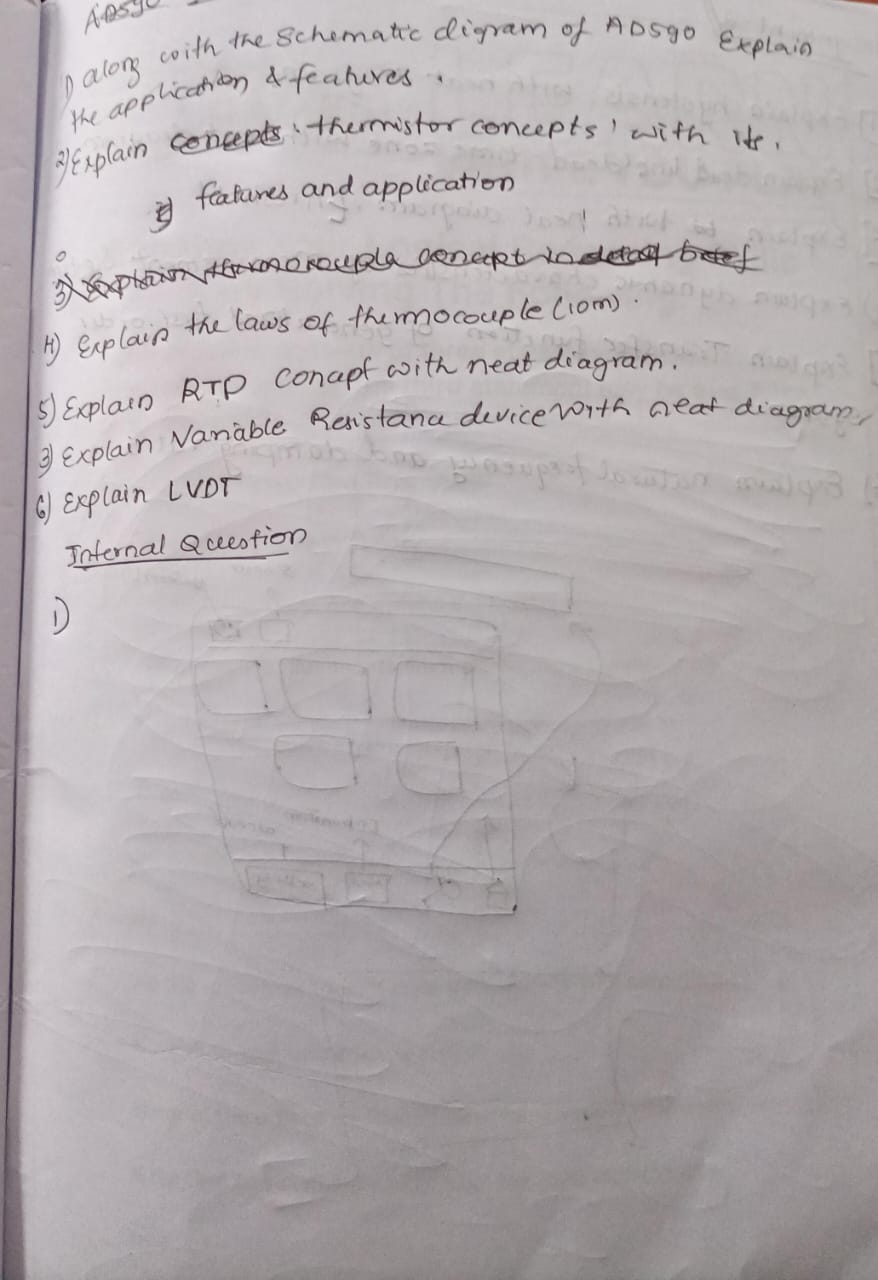 AD590
1) along with the Schematic digram of AD590 Explain
the application & features.
2) Explain concepts 'thermistor concepts' with its.
features and application
4) Explain the laws of thermocouple (10m).
5) Explain RTD concept with neat diagram.
3) Explain Variable Resistance device with neat diagram,
6) Explain LVDT
Internal Question
1)